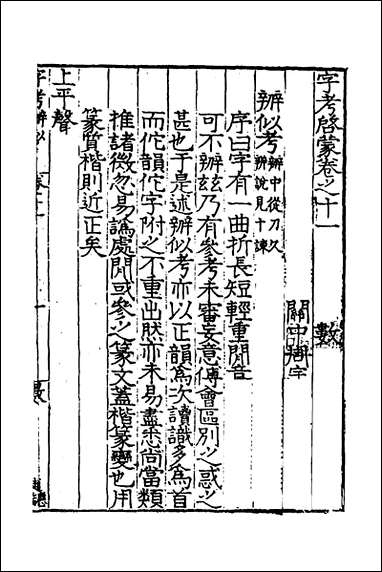 字考啓蒙卷之十一 數
關中周宇
辨似考 辨中從刀久辨說見十諫
序曰字有一曲折長短輕重閒音
可不辨玆乃有參考未審妄意傅會區別之惑之
甚也于是述辨似考亦以正韻爲次讀識多爲首
而佗韻佗字附之不重出然亦未易盡悉尚當類
推諸微忽易譌處閒或參之篆文蓋楷篆變也用
篆質楷則近正矣
上平聲
字考辨似 卷十一 一